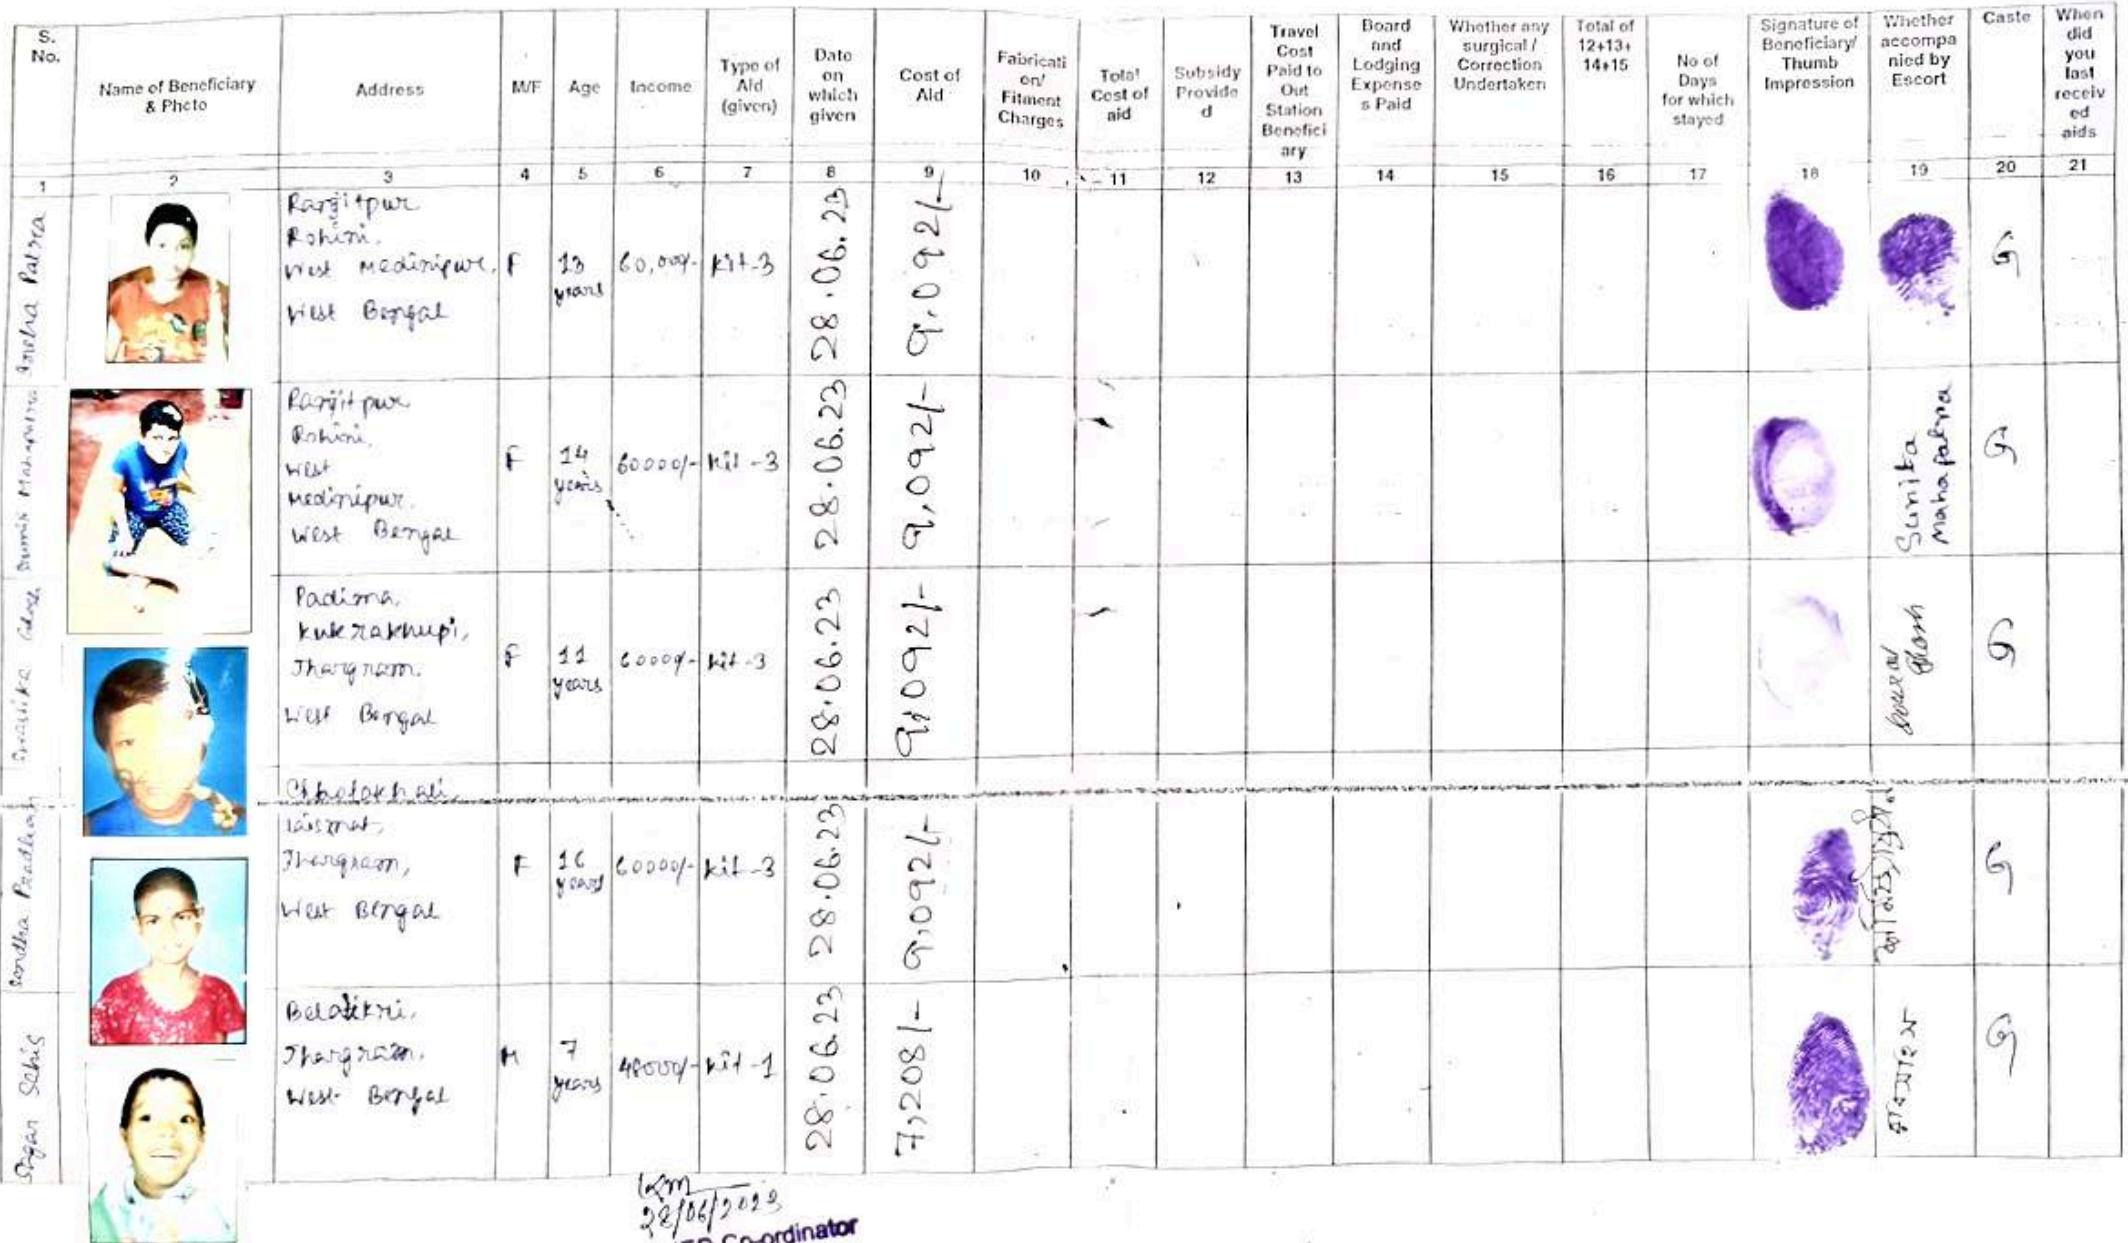 S. No.
Name of Beneficiary & Photo
Address
M/F
Age
Income
Type of Aid (given)
Date on which given
Cost of Aid
Fabricati on/ Fitment Charges
Total Cost of aid
Subsidy Provide d
Travel Cost Paid to Out Station Benefici ary
Board and Lodging Expense s Paid
Whether any surgical / Correction Undertaken
Total of 12+13+ 14+15
No of Days for which stayed
Signature of Beneficiary/ Thumb Impression
Whether accompa nied by Escort
Caste
When did you last receiv ed aids
1 2 3 4 5 6 7 8 9 10 11 12 13 14 15 16 17 18 19 20 21
Patra
Rohini,
West Medinipur,
West Bengal
F
13 years
60,000/-
Kit-3
28.06.23
9,092/-
G
Rohini,
West
Medinipur.
West Bengal
F
14 years
60000/-
Kit-3
28.06.23
9,092/-
Sunita Mahapatra
G
Padima,
Kukrakhupi,
Jhargram.
West Bengal
F
11 years
60000/-
Kit-3
28.06.23
9,092/-
Ghosh
G
Pradhan
Jhargram,
West Bengal
F
16 years
60000/-
Kit-3
28.06.23
9,092/-
G
Sagar
Jhargram.
West Bengal
M
7 years
48000/-
Kit-1
28.06.23
7,208/-
G
28/06/2023
Co-ordinator